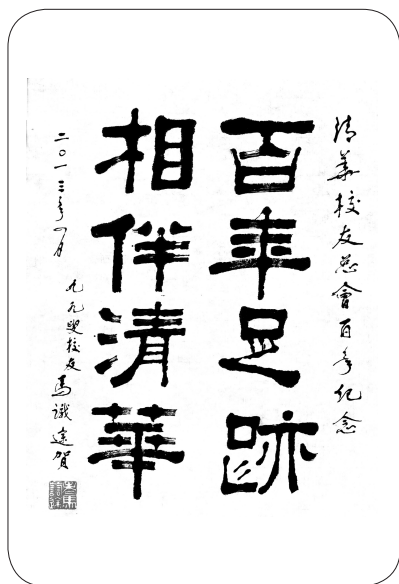 清華校友总會百年纪念
百年足跡
相伴清華
二〇一三年一月
九九叟校友馬識途賀